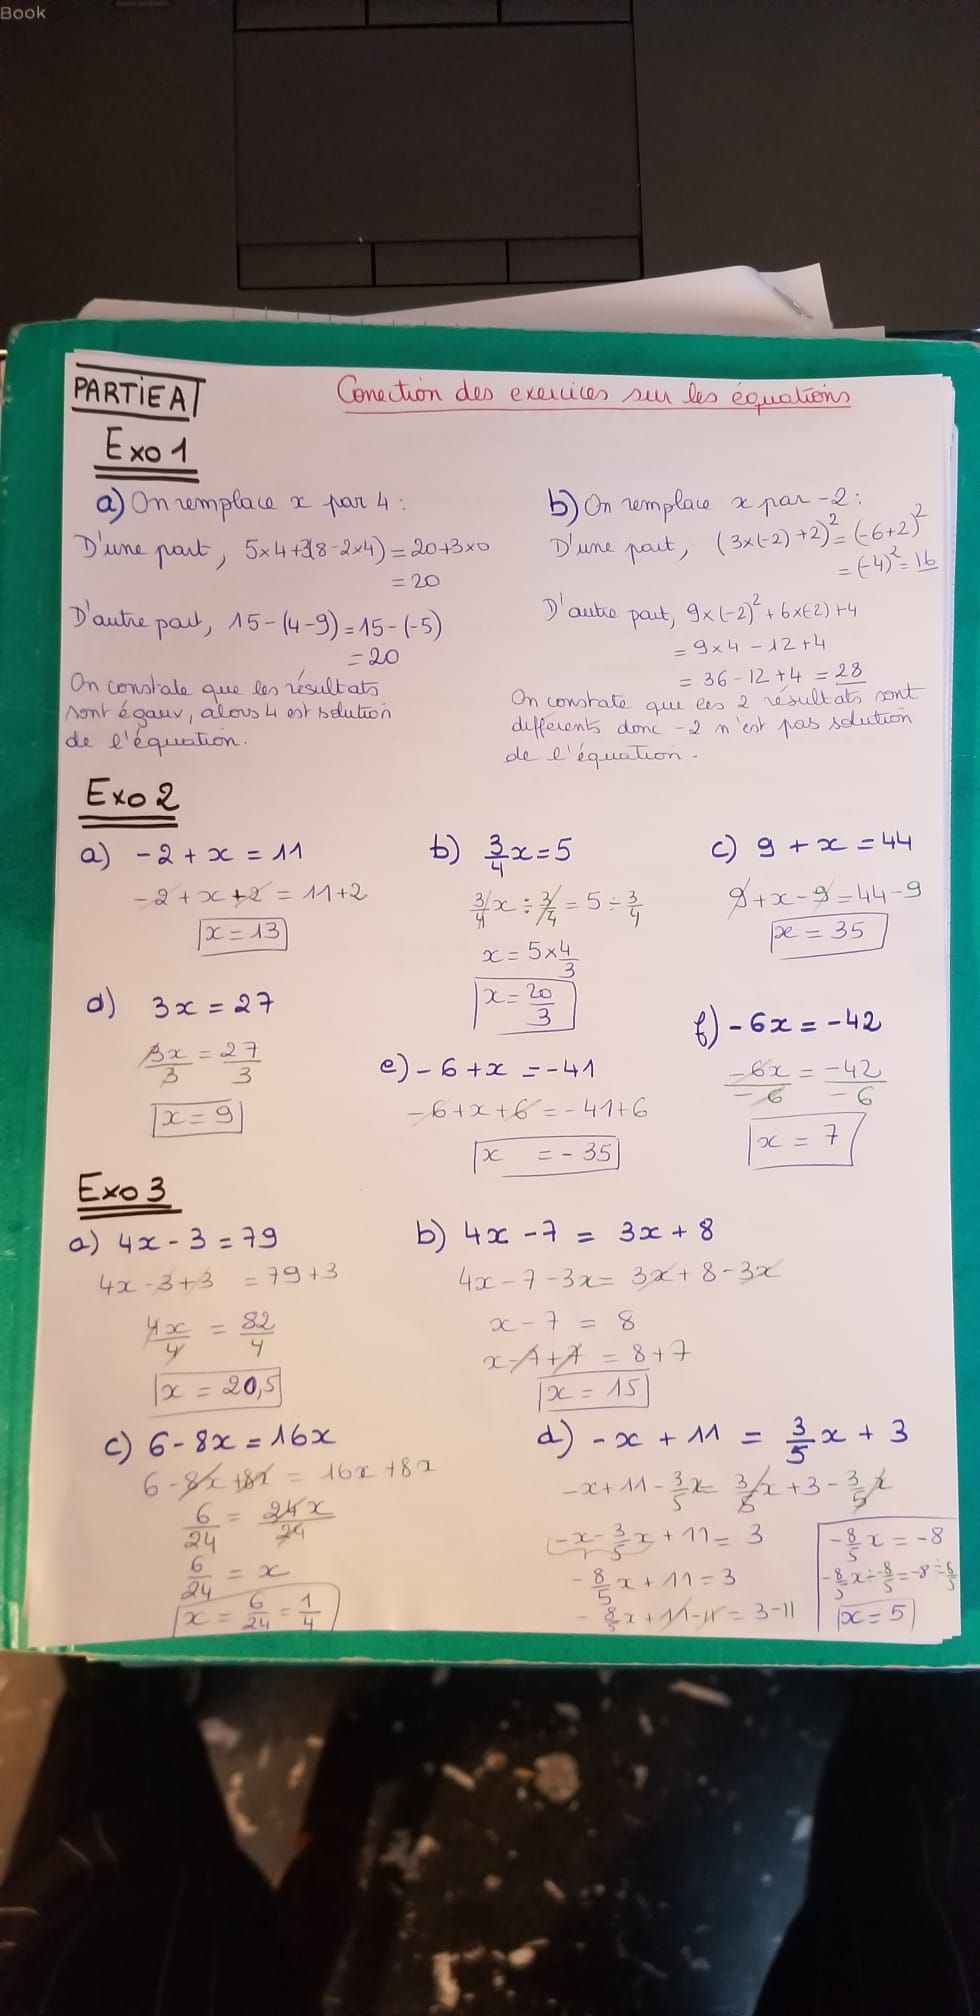 Book
PARTIE A
Correction des exercices sur les équations
Exo 1
a) On remplace x par 4 :
D'une part, 5×4+3(8-2×4) = 20+3×0
= 20
D'autre part, 15-(4-9) = 15-(-5)
= 20
On constate que les résultats
sont égaux, alors 4 est solution
de l'équation.
b) On remplace x par -2 :
D'une part, (3×(-2)+2)² = (-6+2)²
= (-4)² = 16
D'autre part, 9×(-2)² + 6×(-2)+4
= 9×4 - 12+4
= 36-12+4 = 28
On constate que ces 2 résultats sont
différents donc -2 n'est pas solution
de l'équation.
Exo 2
a) -2 + x = 11
-2 + x +2 = 11+2
x = 13
b) 3/4 x = 5
3/4 x ÷ 3/4 = 5 ÷ 3/4
x = 5×4/3
x = 20/3
c) 9 + x = 44
9+x-9 = 44-9
x = 35
d) 3x = 27
3x/3 = 27/3
x = 9
e) -6+x = -41
-6+x+6 = -41+6
x = -35
f) -6x = -42
-6x/-6 = -42/-6
x = 7
Exo 3
a) 4x - 3 = 79
4x - 3+3 = 79+3
4x/4 = 82/4
x = 20,5
b) 4x - 7 = 3x + 8
4x - 7 - 3x = 3x + 8 - 3x
x - 7 = 8
x - 7 + 7 = 8+7
x = 15
c) 6 - 8x = 16x
6 - 8x + 8x = 16x + 8x
6/24 = 24x/24
6/24 = x
x = 6/24 = 1/4
d) -x + 11 = 3/5 x + 3
-x + 11 - 3/5 x = 3/5 x + 3 - 3/5 x
-x/1 - 3/5 x + 11 = 3
-8/5 x + 11 = 3
-8/5 x + 11 - 11 = 3 - 11
-8/5 x = -8
-8/5 x ÷ -8/5 = -8 ÷ -8/5
x = 5